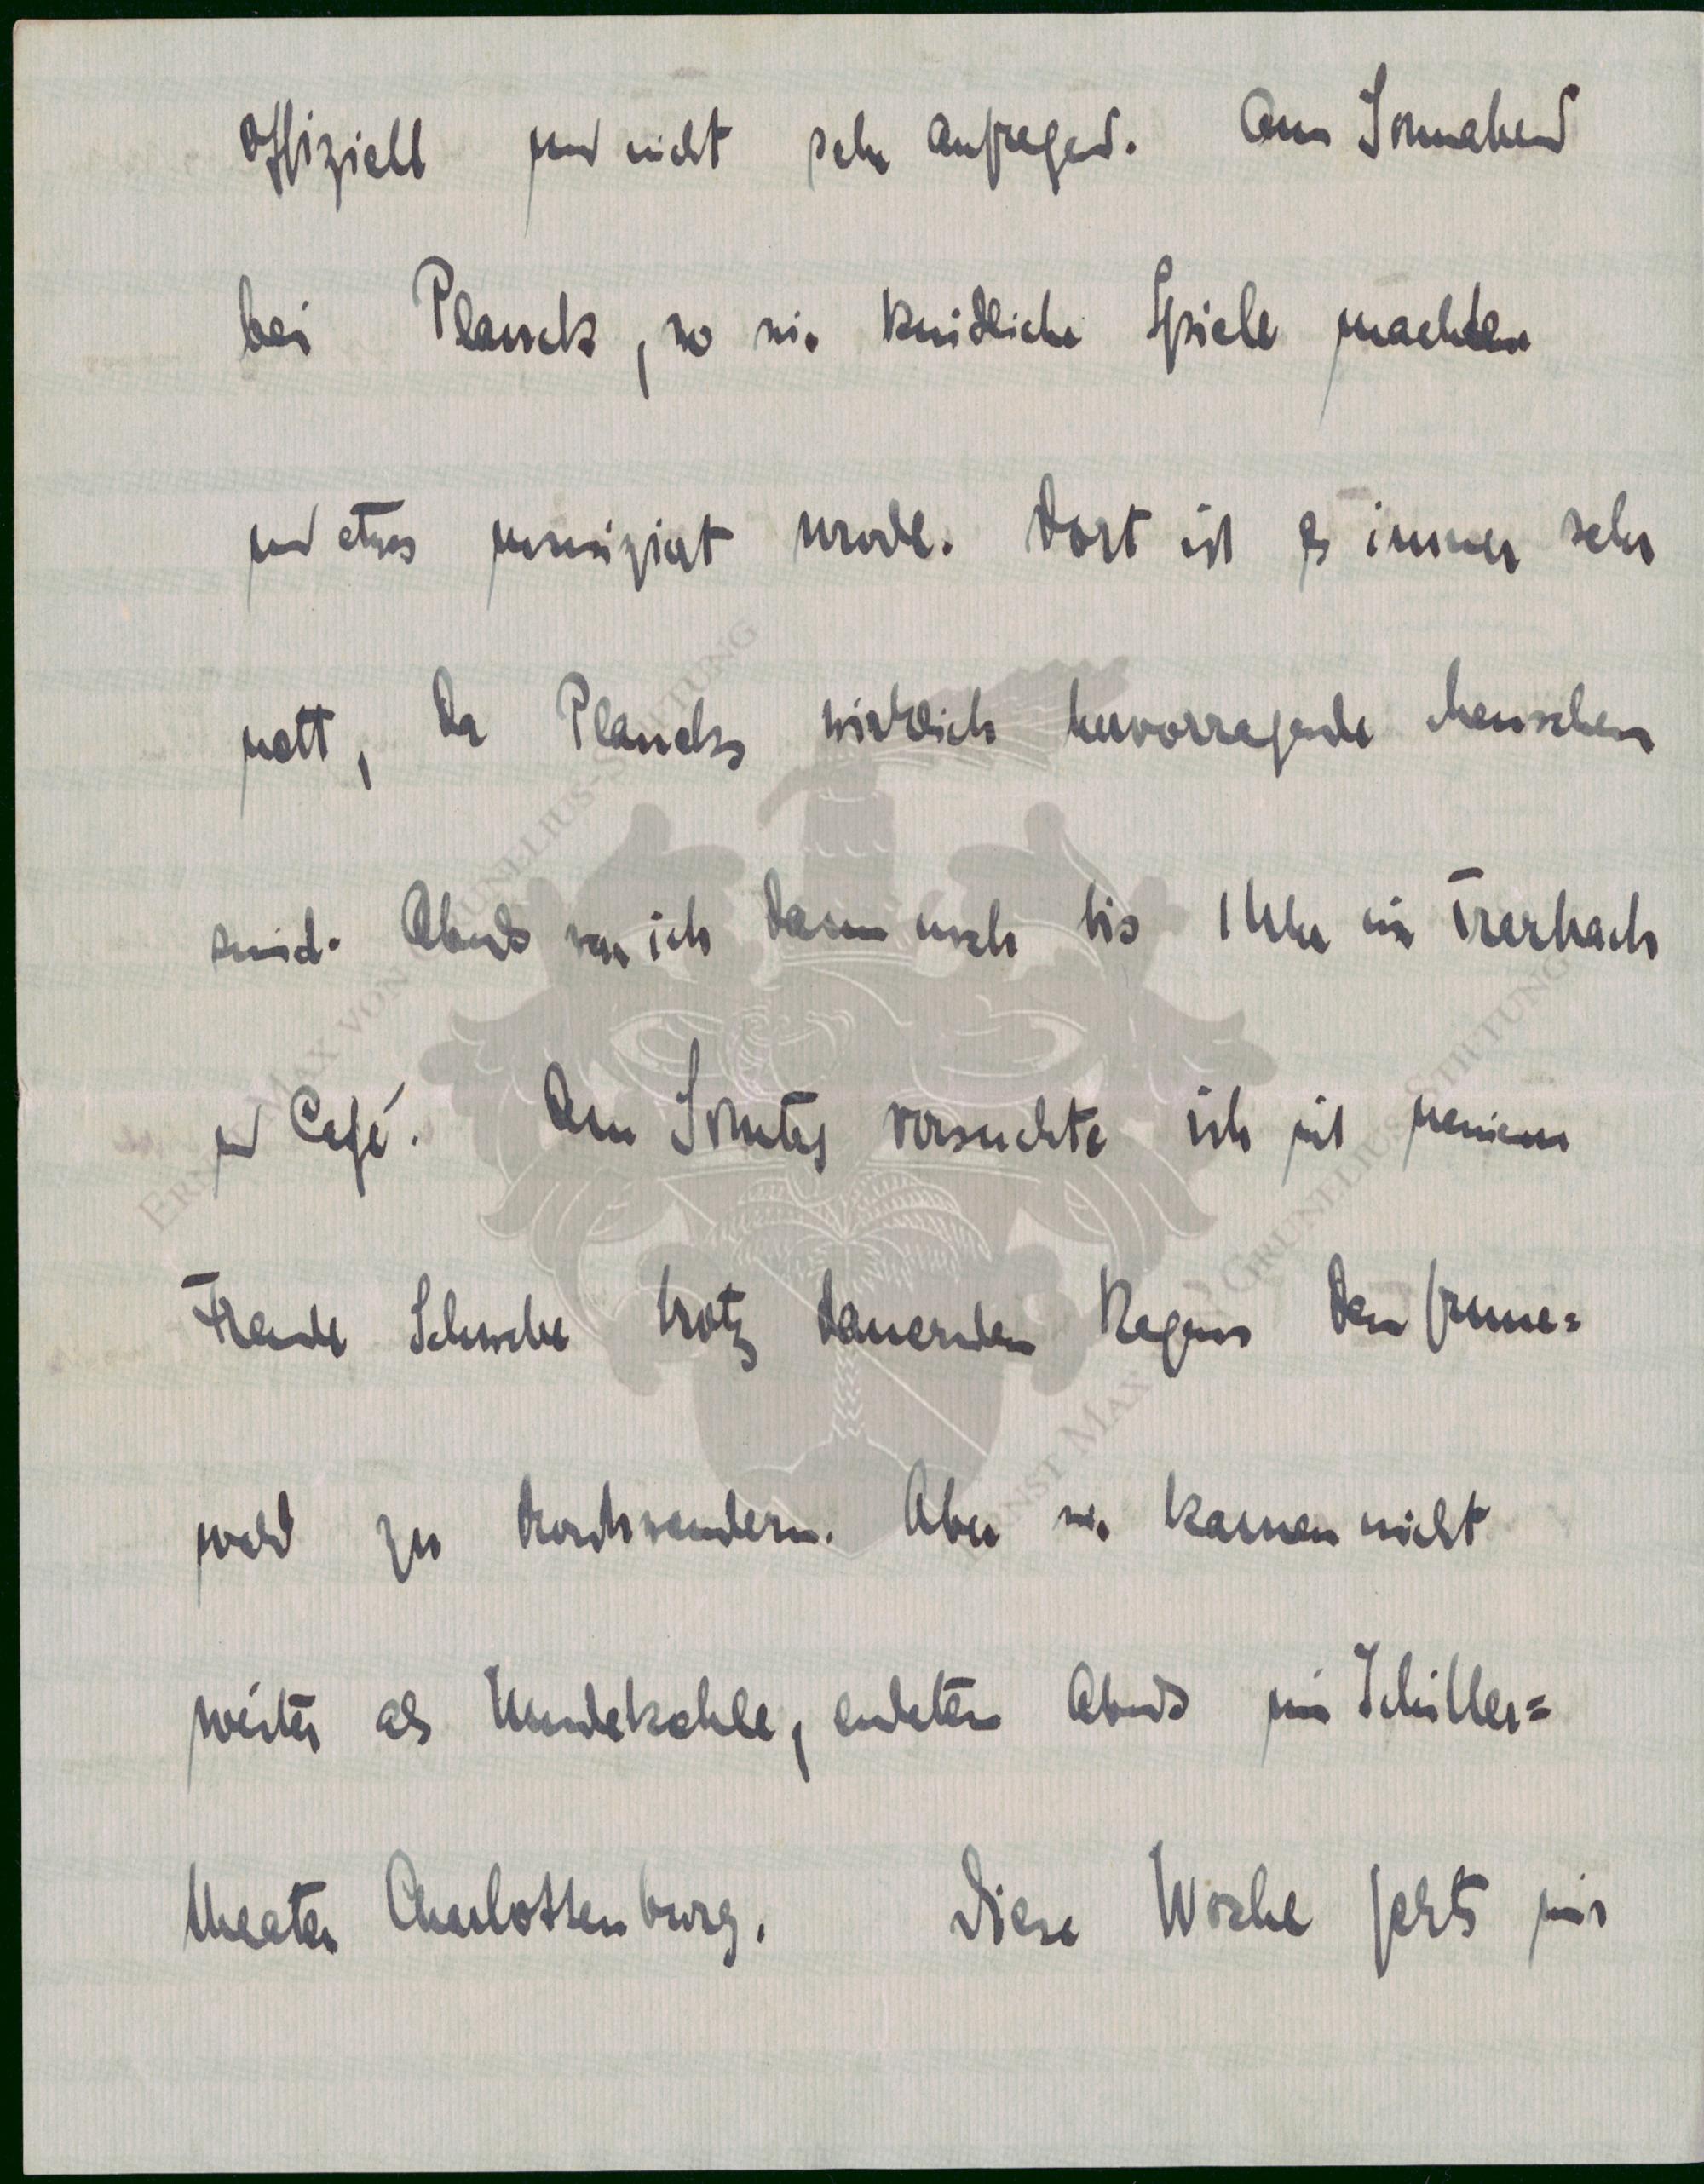 offiziell und nicht sehr aufregend. Am Sonnabend
bei Plancks, wo wir kindliche Spiele machten
und etwas musiziert wurde. Dort ist es immer sehr
nett, da Plancks wirklich hervorragende Menschen
sind. Abends war ich dann noch bis 1 Uhr in Trarbach
und Café. Am Sonntag versuchte ich mit meinem
Freunde Schwebe trotz dauernden Regens den Grune=
wald zu durchwandern. Aber wir kamen nicht
weiter als Hundekehle, endeten Abends im Schiller=
theater Charlottenburg. Diese Woche gehts mir
ERNST MAX VON GRUNELIUS-STIFTUNG
ERNST MAX VON GRUNELIUS-STIFTUNG